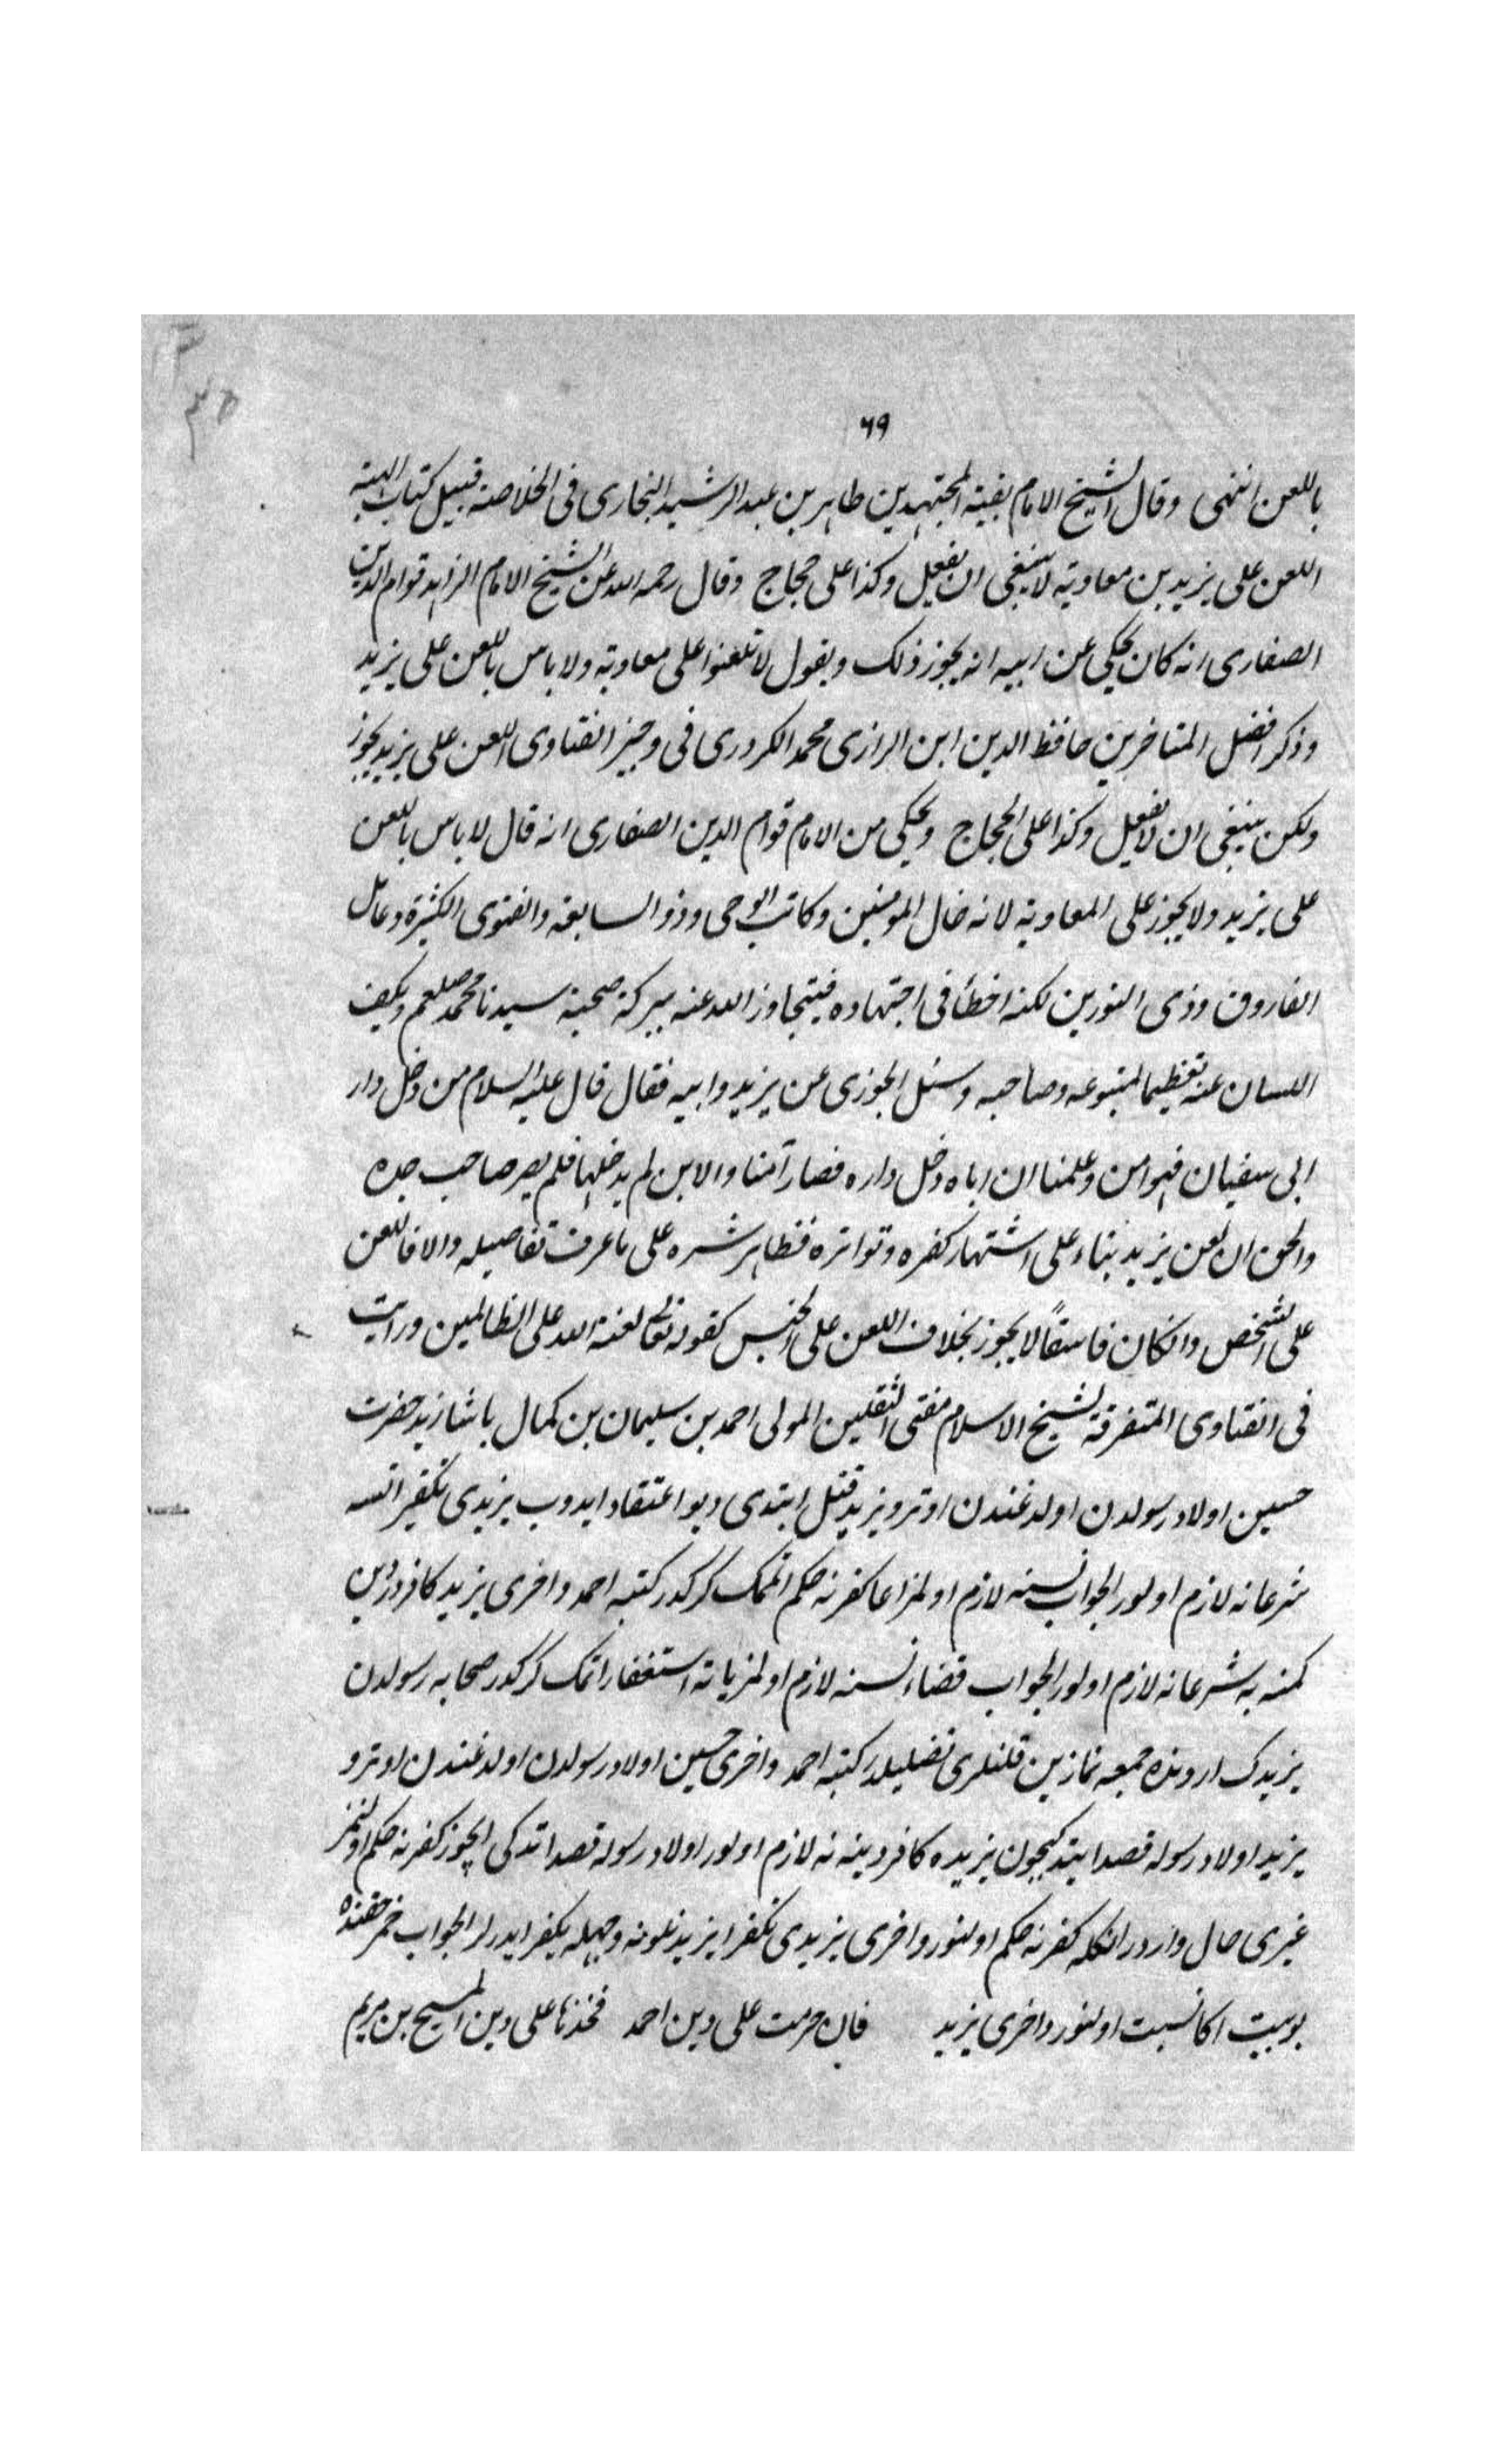 ٦٩
باللعن انتهى وقال الشيخ الامام بقية المجتهدين طاهر بن عبد الرشيد البخارى فى الخلاصة قبيل كتاب الهبة
اللعن على يزيد بن معاوية لا ينبغى ان يفعل وكذا على حجاج وقال رحمه الله عن الشيخ الامام الزاهد قوام الدين
الصفارى انه كان يحكى عن ابيه انه يجوز ذلك ويقول لا تلعنوا على معاوية ولا باس باللعن على يزيد
وذكر افضل المتاخرين حافظ الدين ابن الرازى محمد الكردرى فى وجيز الفتاوى اللعن على يزيد يجوز
ولكن ينبغى ان لا يفعل وكذا على الحجاج ويحكى من الامام قوام الدين الصفارى انه قال لا باس باللعن
على يزيد ولا يجوز على المعاوية لانه خال المومنين وكاتب الوحى وذو السابقه والفتوى الكثيرة وعامل
الفاروق وذى النورين لكنه اخطأ فى اجتهاده فيتجاوز الله عنه ببركة صحبة سيدنا محمد صلعم ويكف
اللسان عنه تعظيما لمتبوعه وصاحبه وسئل الجوزى عن يزيد وابيه فقال قال عليه السلام من دخل دار
ابى سفيان فهو امن وعلمنا ان اباه دخل داره فصار آمنا والابن لم يدخلها فلم يصر صاحب جده
والحق ان لعن يزيد بناء على اشتهار كفره وتواتره فظاهر شره على ما عرف تفاصيله والا فاللعن
على الشخص وانكان فاسقاً لا يجوز بخلاف اللعن على الجنس كقوله تعالى لعنة الله على الظالمين ورايت
فى الفتاوى المتفرقة لشيخ الاسلام مفتى الثقلين المولى احمد بن سليمان بن كمال باشا زيد حضرت
حسين اولاد رسولدن اولدغندن اوترو يزيد قتل ايتدى ديو اعتقاد ايدوب يزيدى تكفير اتسه
شرعا نه لازم اولور الجواب نسنه لازم اولمز اما كفرنه حكم اتمك كركدر كتبه احمد واخرى يزيد كافردر دين
كمنه يه شرعا نه لازم اولور الجواب قضاء نسنه لازم اولمز ديانة استغفار اتمك كركدر صحابه رسولدن
يزيدك اردنده جمعه نمازين قلنلرى تضليلدر كتبه احمد واخرى حسين اولاد رسولدن اولدغندن اوترو
يزيد اولاد رسوله قصد ايتدكيچون يزيده كافر دينه نه لازم اولور اولاد رسوله قصد اتدكى ايچوز كفرنه حكم اولنمز
غيرى حال واردر انكله كفرنه حكم اولنور واخرى يزيدى تكفر ايدنلر نه وجهله تكفير ايدرلر الجواب خمر حقنده
بو بيت اكا نسبت اولنور واخرى يزيد فان حرمت على دين احمد فخذها على دين المسيح بن مريم